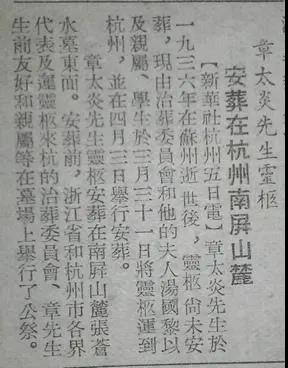 章太炎先生靈柩
安葬在杭州南屏山麓
【新華社杭州五日電】章太炎先生於
一九三六年在蘇州逝世後，靈柩尚未安
葬，現由治葬委員會和他的夫人湯國黎以
及親屬、學生於三月三十一日將靈柩運到
杭州，並在四月三日舉行安葬。
章太炎先生靈柩安葬在南屏山麓張蒼
水墓東面。安葬前，浙江省和杭州市各界
代表及運靈柩來杭的治葬委員會、章先生
生前友好和親屬等在墓場上舉行了公祭。